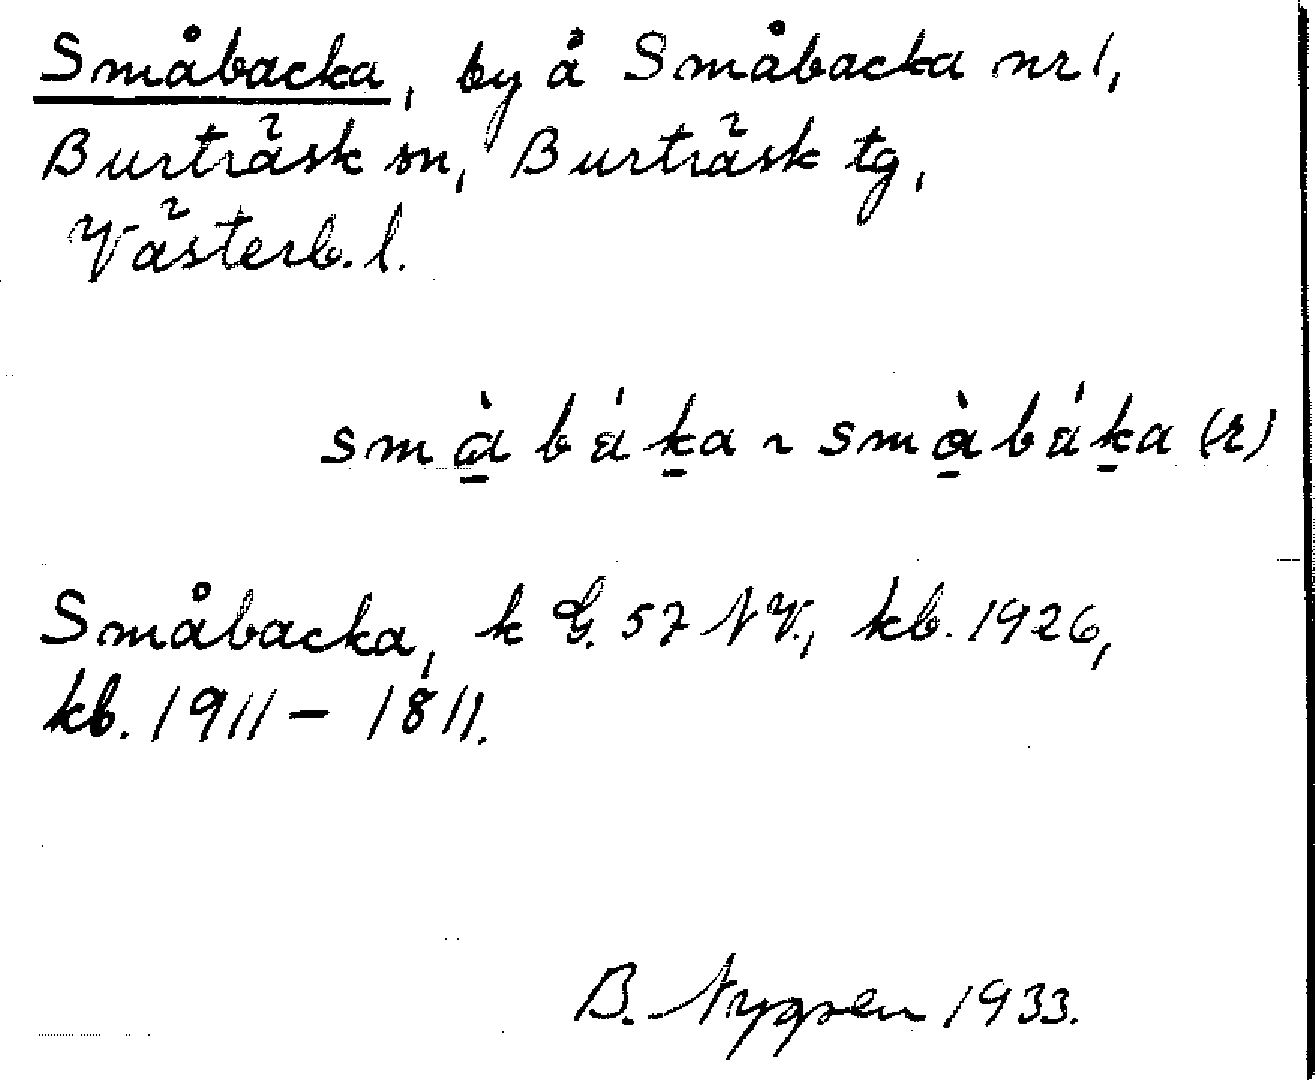 Småbacka, by å Småbacka nr 1,
Burträsk sn, Burträsk tg,
Västerb. l.
smɑ̠̀ báḵa ~ smɑ̠̀báḵa (r)
Småbacka, k G. 57 NV., kb. 1926,
kb. 1911 – 1811.
B. Nygren 1933.